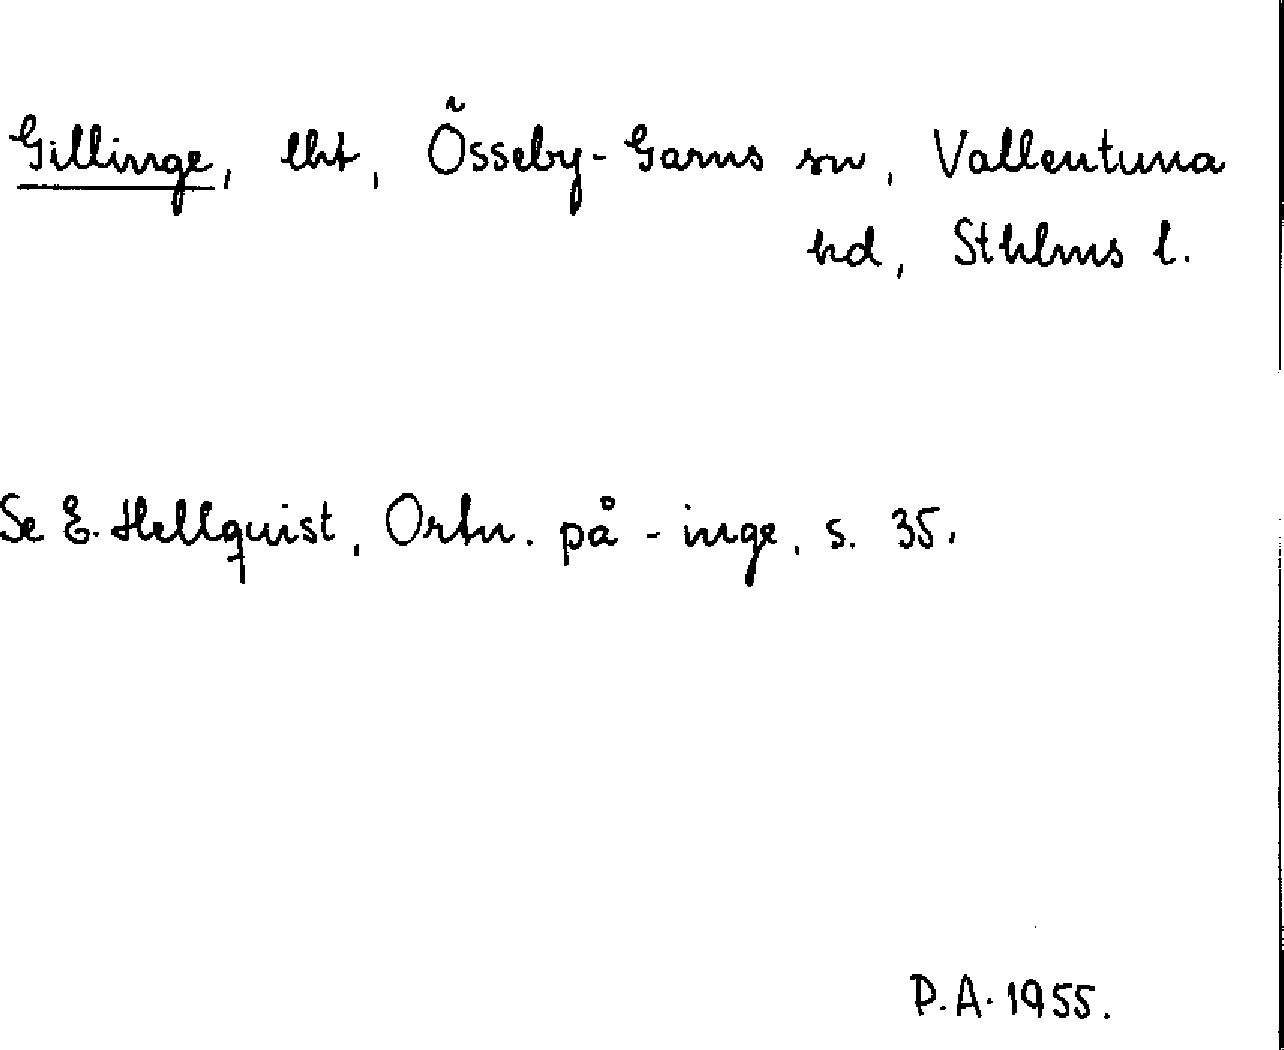 Gillinge, lht, Össeby-Garns sn, Vallentuna
hd, Sthlms l.
Se E. Hellquist, Ortn. på -inge, s. 35.
P.A. 1955.